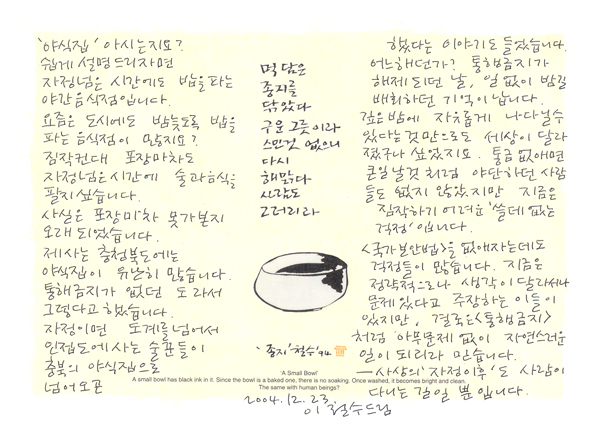 '야식집' 아시는지요?
쉽게 설명드리자면
자정넘은 시간에도 밥을 파는
야간음식점입니다.
요즘은 도시에도 밤늦도록 밥을
파는 음식점이 많지요?
짐작컨대 포장마차도
자정넘은 시간에 술과 음식을
팔지 싶습니다.
사실은 포장마차 못 가본지
오래 되었습니다.
제 사는 충청북도에는
야식집이 유난히 많습니다.
통행금지가 없던 도라서
그렇다고 했습니다.
자정이면 도계를 넘어서
인접도에 사는 술꾼들이
충북의 야식집으로
넘어오곤
먹 담은
종지를
닦았다
구운 그릇이라
스민것 없으니
다시
해맑다
사람도
그러리라
'종지' 철수 '94
'A Small Bowl'
A small bowl has black ink in it. Since the bowl is a baked one, there is no soaking. Once washed, it becomes bright and clean.
The same with human beings?
했다는 이야기도 들었습니다.
어느해던가? 통행금지가
해제되던 날, 일 없이 밤길
배회하던 기억이 납니다.
깊은 밤에 자유롭게 나다닐수
있다는 것만으로도 세상이 달라
졌구나 싶었지요. 통금 없애면
큰일 날것 처럼 야단하던 사람
들도 없지 않았지만 지금은
짐작하기 어려운 '쓸데없는
걱정' 입니다.
<국가보안법>을 없애자는데도
걱정들이 많습니다. 지금은
정략적으로나 생각이 달라서나
문제 있다고 주장하는 이들이
있지만, 결국은 <통행금지>
처럼 아무문제 없이 자연스러운
일이 되리라 믿습니다.
—사상의 '자정이후'도 사람이
다니는 길일 뿐 입니다.
2004.12.23.
이철수드림